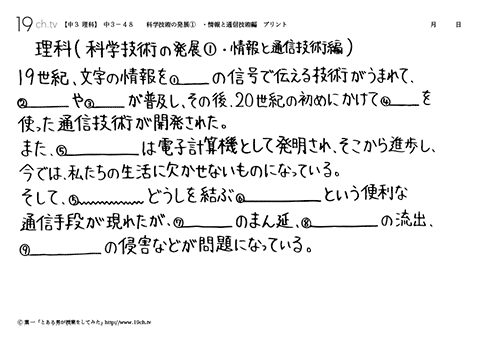 19ch.tv 【中3 理科】 中3-48 科学技術の発展① ・情報と通信技術編 プリント 月 日
理科(科学技術の発展①・情報と通信技術編)
19世紀、文字の情報を①____の信号で伝える技術がうまれて、
②____や③____が普及し、その後、20世紀の初めにかけて④____を
使った通信技術が開発された。
また、⑤____は電子計算機として発明され、そこから進歩し、
今では、私たちの生活に欠かせないものになっている。
そして、⑤____どうしを結ぶ⑥____という便利な
通信手段が現れたが、⑦____のまん延、⑧____の流出、
⑨____の侵害などが問題になっている。
Ⓒ 葉一「とある男が授業をしてみた」http://www.19ch.tv